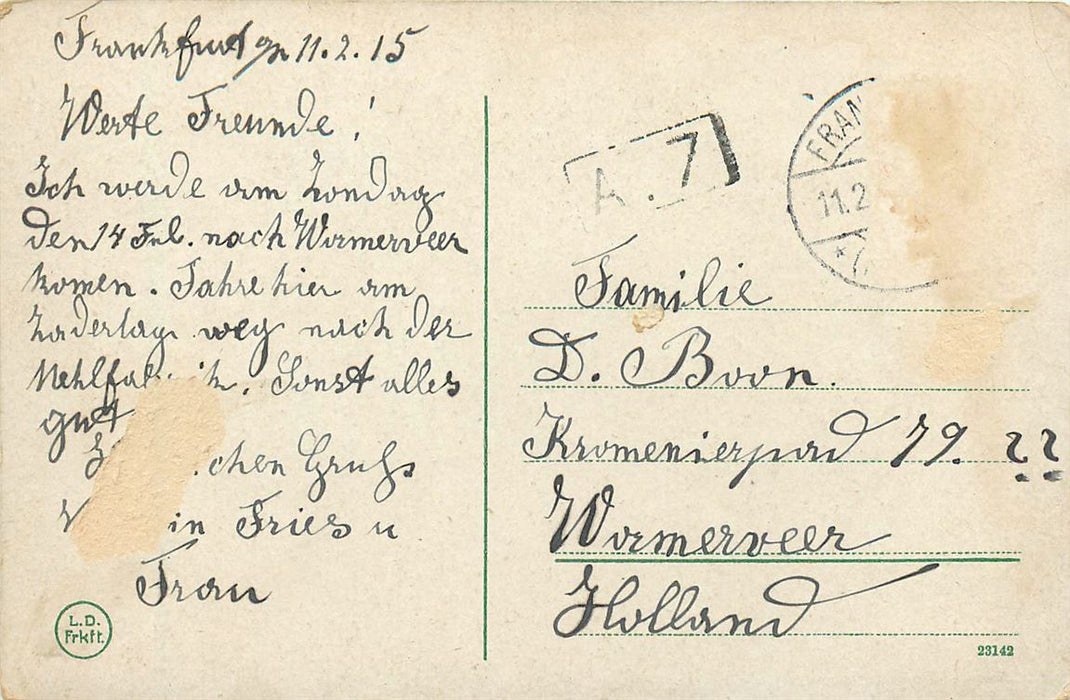 Frankfurt a/m 11.2.15
Werte Freunde!
Ich werde am Zondag
den 14 Feb. nach Wormerveer
komen. Fahre hier am
Zadertag weg nach der
Mehlfabrik. Sonst alles
gut
chen Gruß
in Fries u
Frau
L.D.
Frkft.
A. 7
FRAN
11.2
Familie
D. Boon.
Kromenierpad 79. ??
Wormerveer
Holland
23142